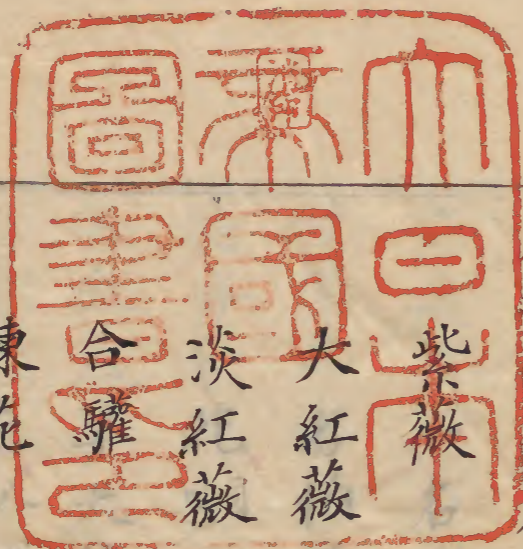 大日本
帝國
圖書印
紫薇
大紅薇
淡紅薇
合驩